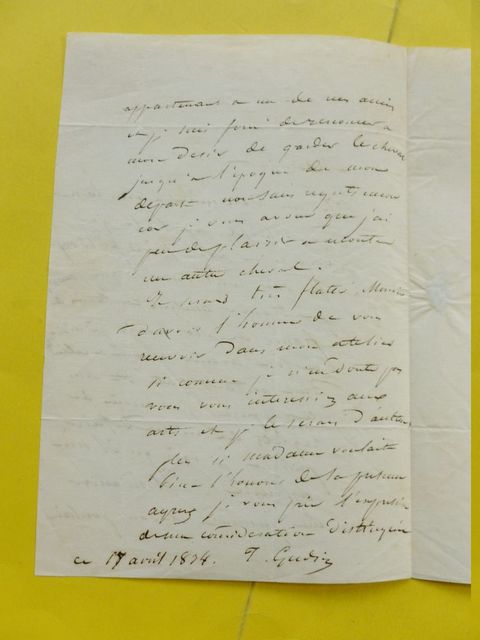 appartenant a un de mes amis
et je suis forcé de renoncer a
mon desir de garder le cheval
jusqu'a l'époque de mon
départ non sans regrets
car je vous avoue que j'ai
peu de plaisir a monter
un autre cheval.
Je serais très flatté, Monsieur
d'avoir l'honneur de vous
recevoir dans mon atelier
si comme je n'en doute pas
vous vous interessez aux
arts et je le serais d'autant
plus si madame voulait
bien l'honorer de sa presence
agréez je vous prie l'expression
de ma consideration distinguée
ce 17 avril 1828. T. Gudin